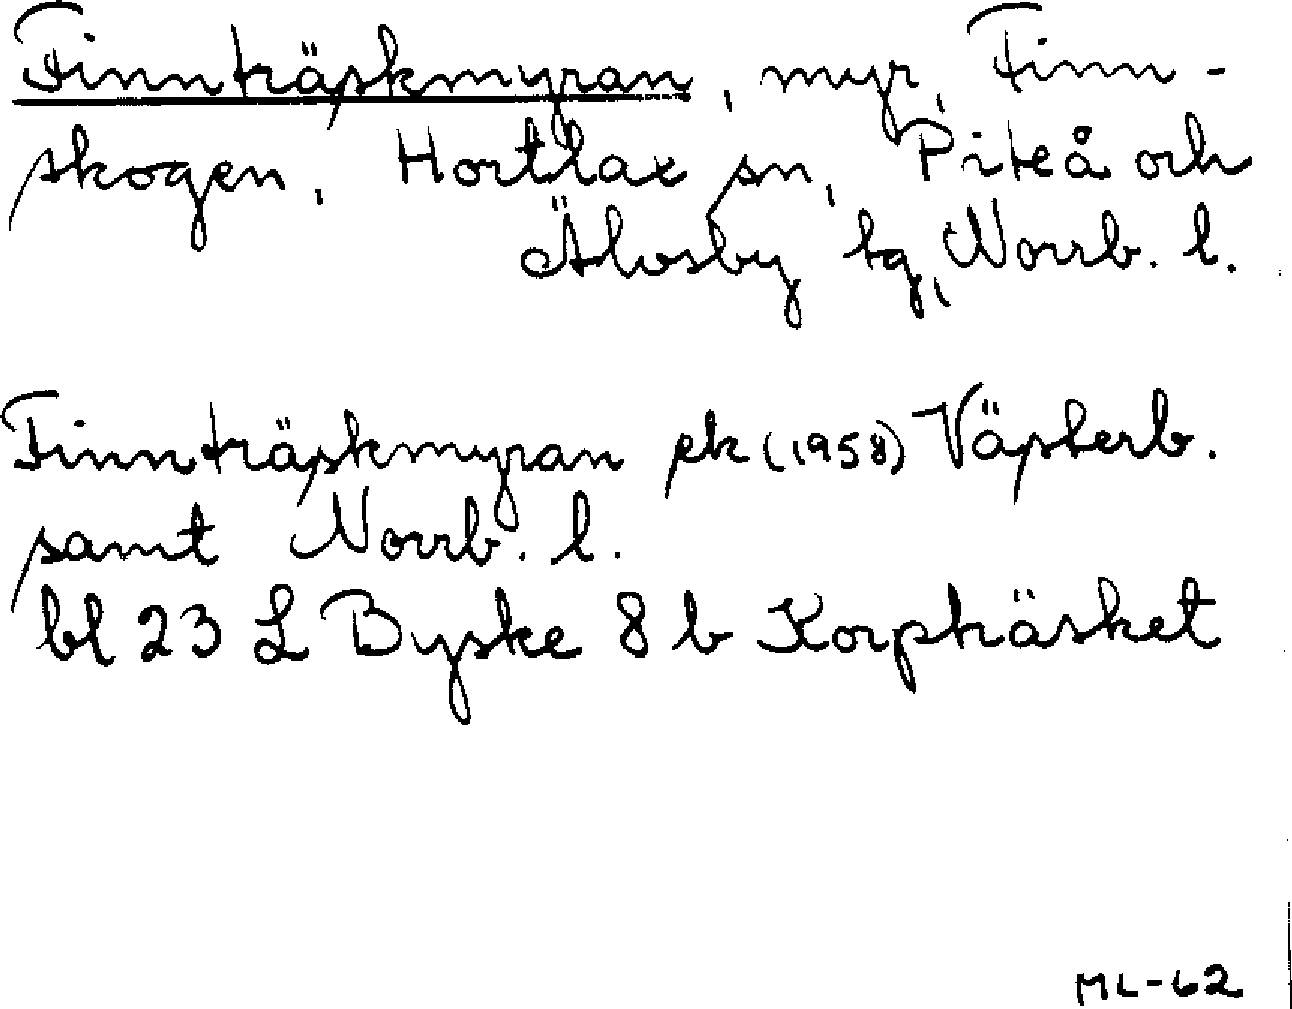 Finnträskmyran, myr, Finn-
skogen, Hortlax sn, Piteå och
Älvsby tg, Norrb. l.
Finnträskmyran ek (1958) Västerb.
samt Norrb. l.
bl 23 L Byske 8 b Korpträsket
ML-62